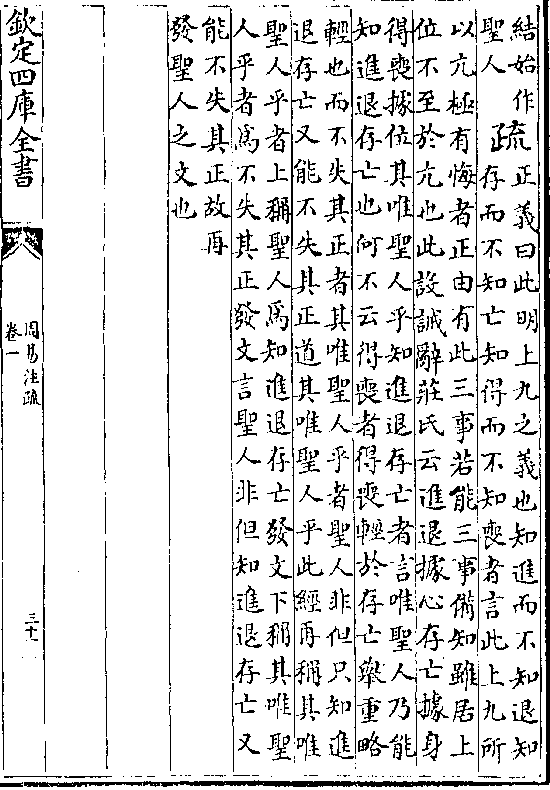 結始作
聖人
疏
正義曰此明上九之義也知進而不知退知
存而不知亡知得而不知喪者言此上九所
以亢極有悔者正由有此三事若能三事備知雖居上
位不至於亢也此設誡辭莊氏云進退據心存亡據身
得喪據位其唯聖人乎知進退存亡者言唯聖人乃能
知進退存亡也何不云得喪者得喪輕於存亡舉重略
輕也而不失其正者其唯聖人乎者聖人非但只知進
退存亡又能不失其正道其唯聖人乎此經再稱其唯
聖人乎者上稱聖人為知進退存亡發文下稱其唯聖
人乎者為不失其正發文言聖人非但知進退存亡又
能不失其正故再
發聖人之文也
欽定四庫全書
周易注疏
卷一
三十一